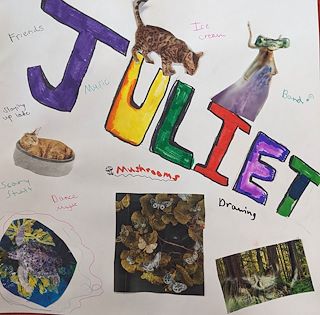 Friends
Ice
cream
JULIET
Music
Band
Sleeping
up late
Mushrooms
Scary
stuff
Dance
magic
Drawing